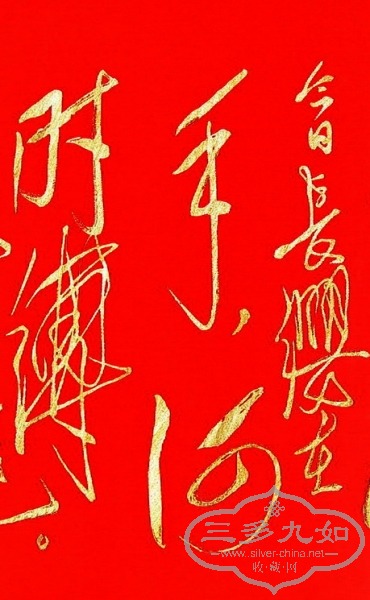 今日長纓在
手,何
时縛
三多九如
www.silver-china.net
收藏·网